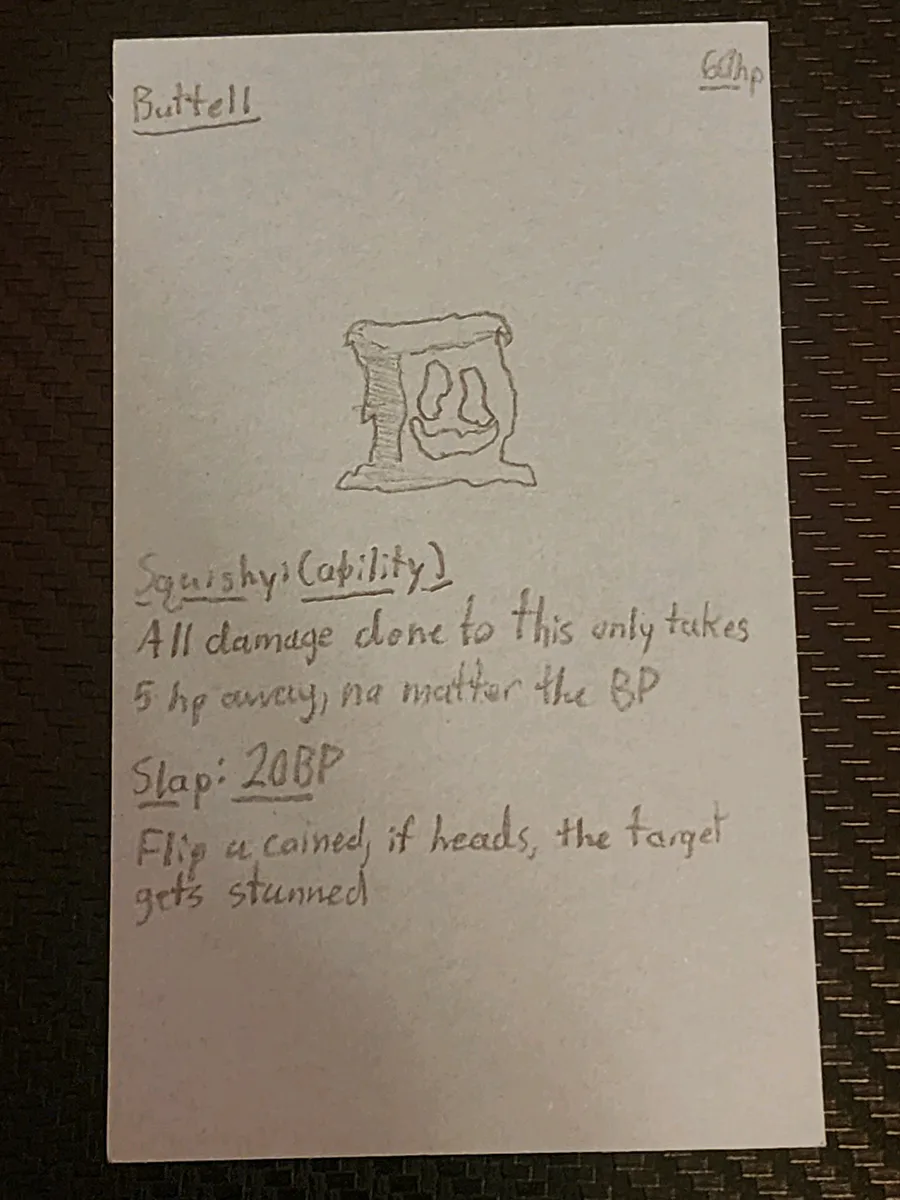 Buttell
60hp
Squishy: (ability)
All damage done to this only takes
5 hp away, no matter the BP
Slap: 20BP
Flip a coined, if heads, the target
gets stunned